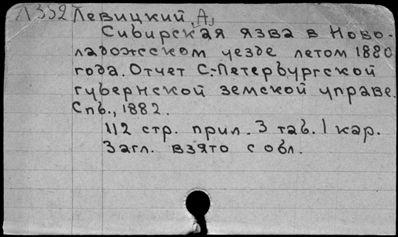 Л352 Левицкий, А.
Сибирская язва в Ново-
ладожском уезде летом 1880
года. Отчет С.-Петербургской
губернской земской управе.
Спб., 1882.
112 стр. прил. 3 таб. 1 кар.
Загл. взято с обл.